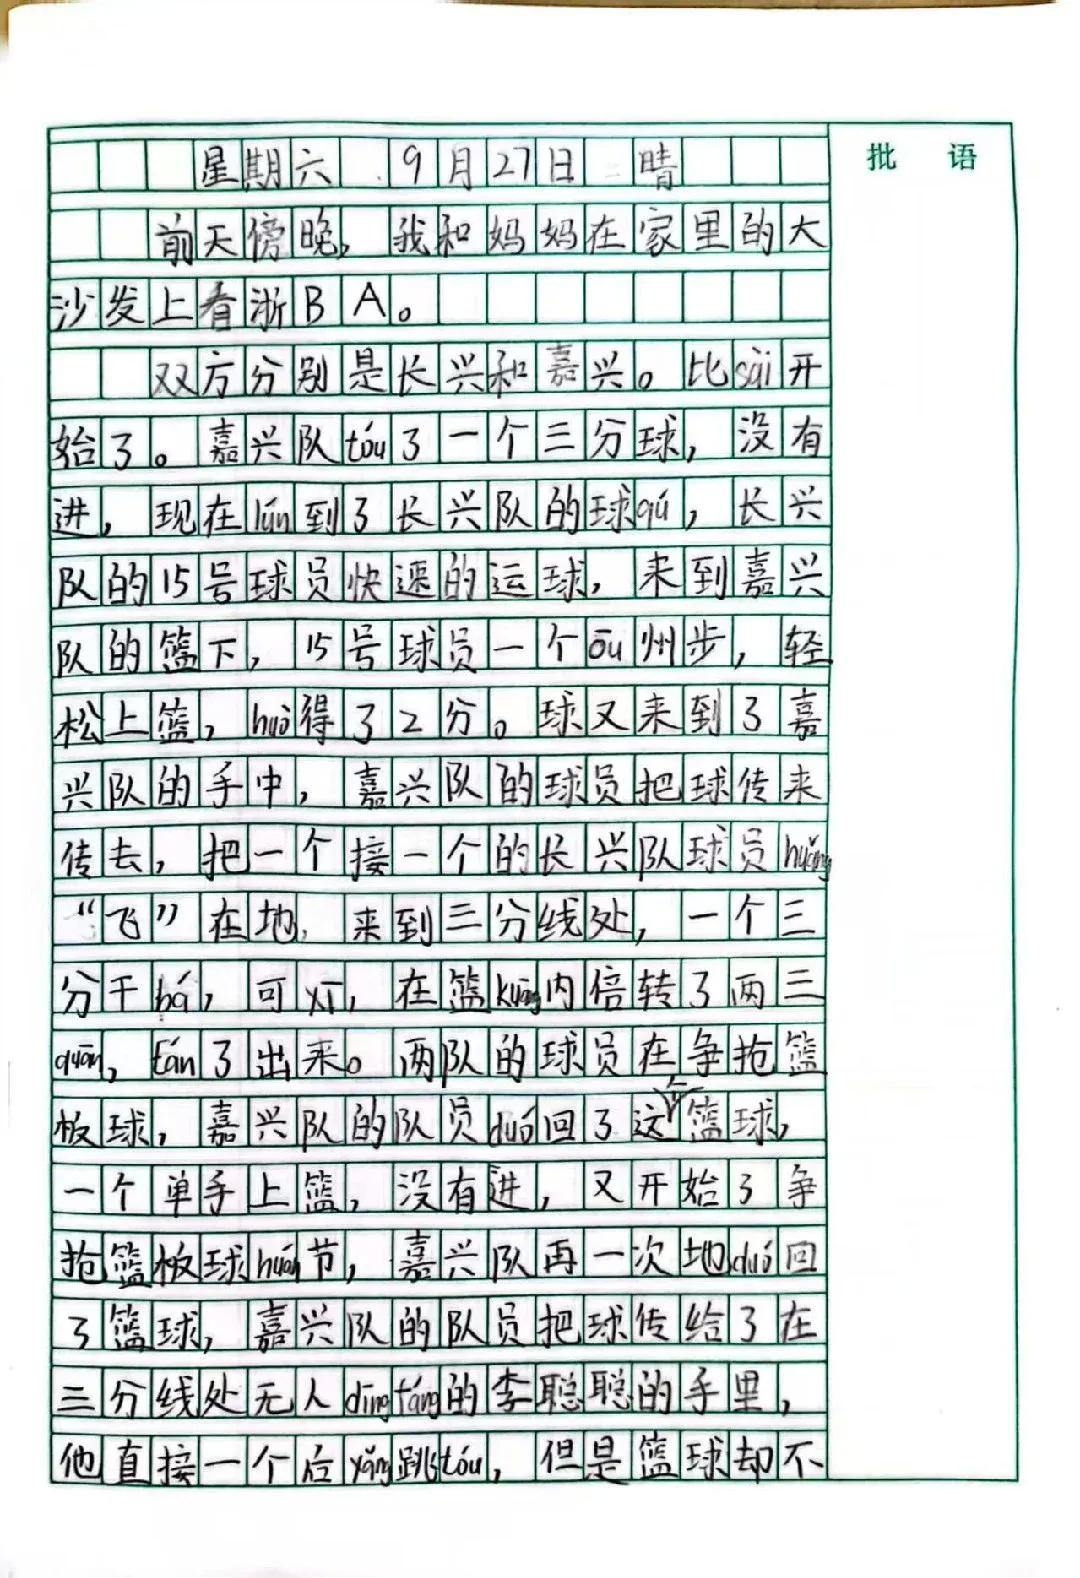 批 语
星期六 9月27日 晴
前天傍晚，我和妈妈在家里的大
沙发上看浙BA。
双方分别是长兴和嘉兴。比sài开
始了。嘉兴队tóu了一个三分球，没有
进，现在lún到了长兴队的球qú，长兴
队的15号球员快速的运球，来到嘉兴
队的篮下，15号球员一个ōu州步，轻
松上篮，huò得了2分。球又来到了嘉
兴队的手中，嘉兴队的球员把球传来
传去，把一个接一个的长兴队球员huǎng
“飞”在地，来到三分线处，一个三
分干bá，可xī，在篮kuāng内倍转了两三
quān，tán了出来。两队的球员在争抢篮
板球，嘉兴队的队员duó回了这个篮球，
一个单手上篮，没有进，又开始了争
抢篮板球huán节，嘉兴队再一次地duó回
了篮球，嘉兴队的队员把球传给了在
三分线处无人dīngfáng的李聪聪的手里，
他直接一个后yǎng跳tóu，但是篮球却不